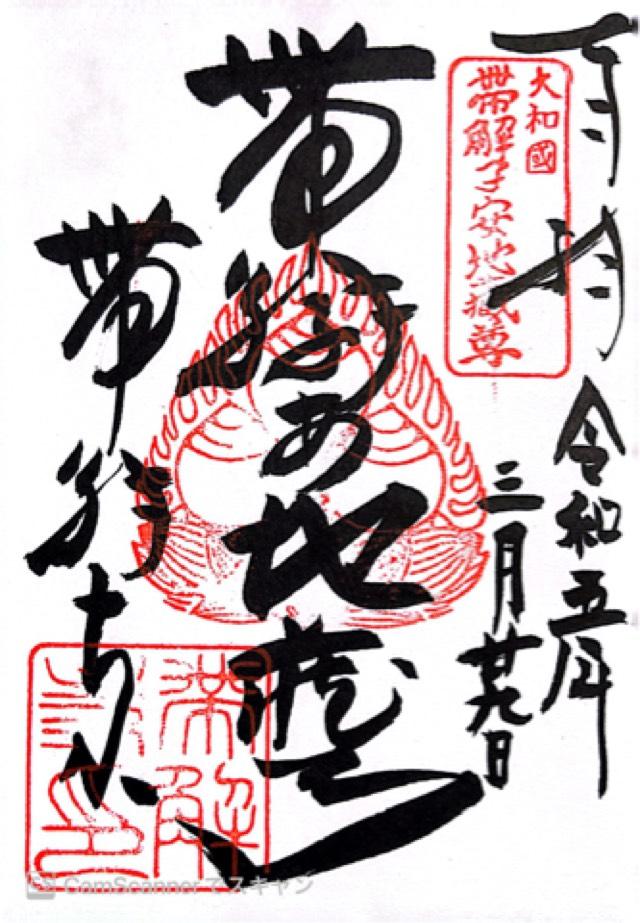 奉拝
令和五年
三月廿九日
大和國
帶解子安地蔵尊
帶解
地蔵
帶解寺
帶解
寺印
CamScanner でスキャン